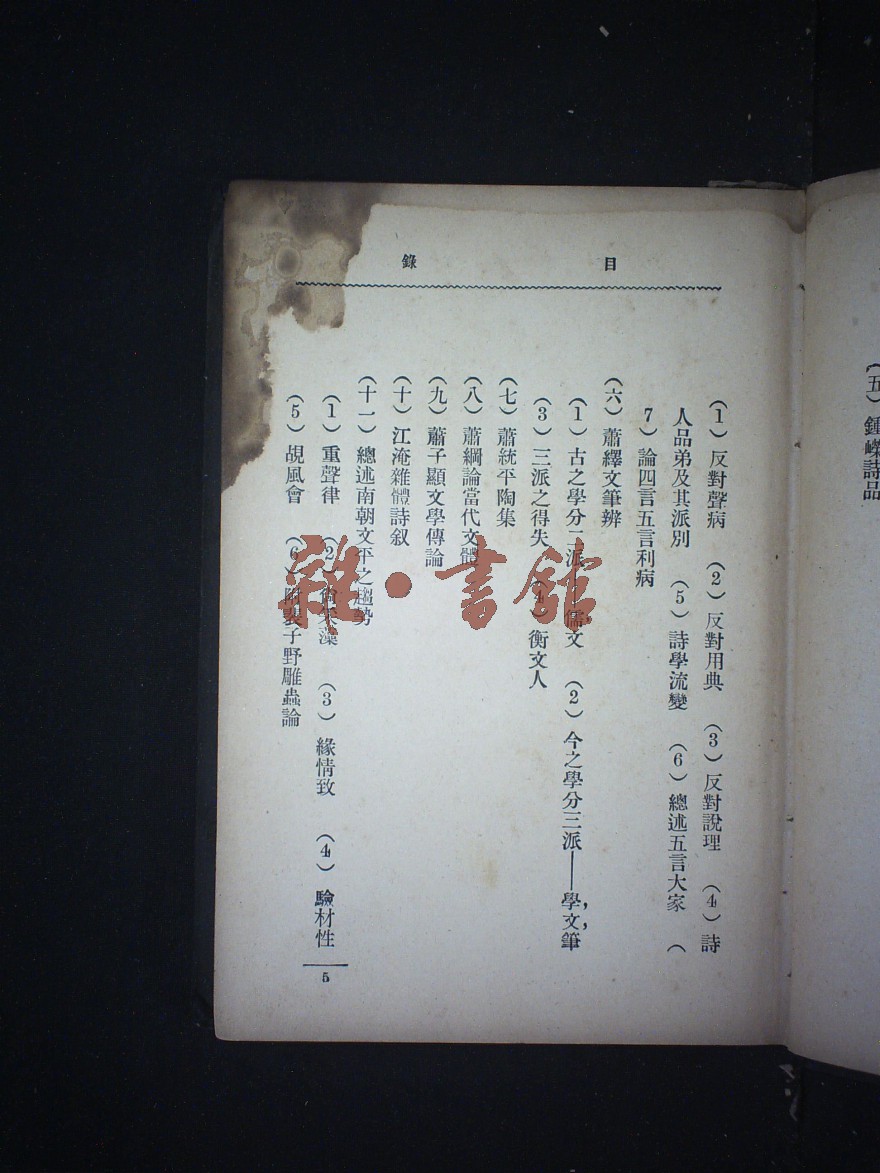 目錄
(1)反對聲病 (2)反對用典 (3)反對說理 (4)詩
人品第及其派別 (5)詩學流變 (6)總述五言大家 (
7)論四言五言利病
(六)蕭繹文筆辨
(1)古之學分二派——儒文 (2)今之學分三派——學,文,筆
(3)三派之得失 (4)衡文人
(七)蕭統平陶集
(八)蕭綱論當代文體
(九)蕭子顯文學傳論
(十)江淹雜體詩叙
(十一)總述南朝文平之趨勢
(1)重聲律 (2)藻 (3)緣情致 (4)驗材性
(5)覘風會 (6)附裴子野雕蟲論
5
(五)鍾嶸詩品
雜·書館